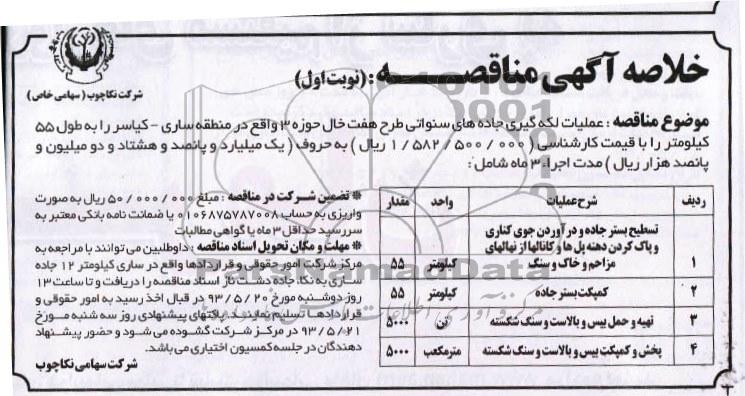 خلاصه آگهی مناقصــــــه : (نوبت اول)
شرکت نکاچوب (سهامی خاص)
موضوع مناقصه : عملیات لکه گیری جاده های سنواتی طرح هفت خال حوزه ۳ واقع در منطقه ساری - کیاسر را به طول ۵۵
کیلومتر را با قیمت کارشناسی ( ۰۰۰ / ۵۰۰ / ۵۸۲ / ۱ ریال ) به حروف ( یک میلیارد و پانصد و هشتاد و دو میلیون و
پانصد هزار ریال ) مدت اجراء ۳ ماه شامل :
ردیف شرح عملیات واحد مقدار
تسطیح بستر جاده و درآوردن جوی کناری
و پاک کردن دهنه پل ها و کانالها از نهالهای
۱ مزاحم و خاک و سنگ کیلومتر ۵۵
۲ کمپکت بستر جاده کیلومتر ۵۵
۳ تهیه و حمل بیس و بالاست و سنگ شکسته تن ۵۰۰۰
۴ پخش و کمپکت بیس و بالاست و سنگ شکسته مترمکعب ۵۰۰۰
* تضمین شــرکت در مناقصه : مبلغ ۰۰۰ / ۰۰۰ / ۵۰ ریال به صورت
واریزی به حساب ۰۱۰۶۸۷۵۷۸۷۰۰۸ یا ضمانت نامه بانکی معتبر به
سررسید حداقل ۳ ماه یا گواهی مطالبات
* مهلت و مکان تحویل اسناد مناقصه : داوطلبین می توانند با مراجعه به
مرکز شرکت امور حقوقی و قراردادها واقع در ساری کیلومتر ۱۲ جاده
ساری به نکا، جاده دشت ناز اسناد مناقصه را دریافت و تا ساعت ۱۳
روز دوشنبه مورخ ۹۳/۵/۲۰ در قبال اخذ رسید به امور حقوقی و
قراردادها تسلیم نمایند. پاکتهای پیشنهادی روز سه شنبه مورخ
۹۳/۵/۲۱ در مرکز شرکت گشوده می شود و حضور پیشنهاد
دهندگان در جلسه کمسیون اختیاری می باشد.
شرکت سهامی نکاچوب
ParsNamadData